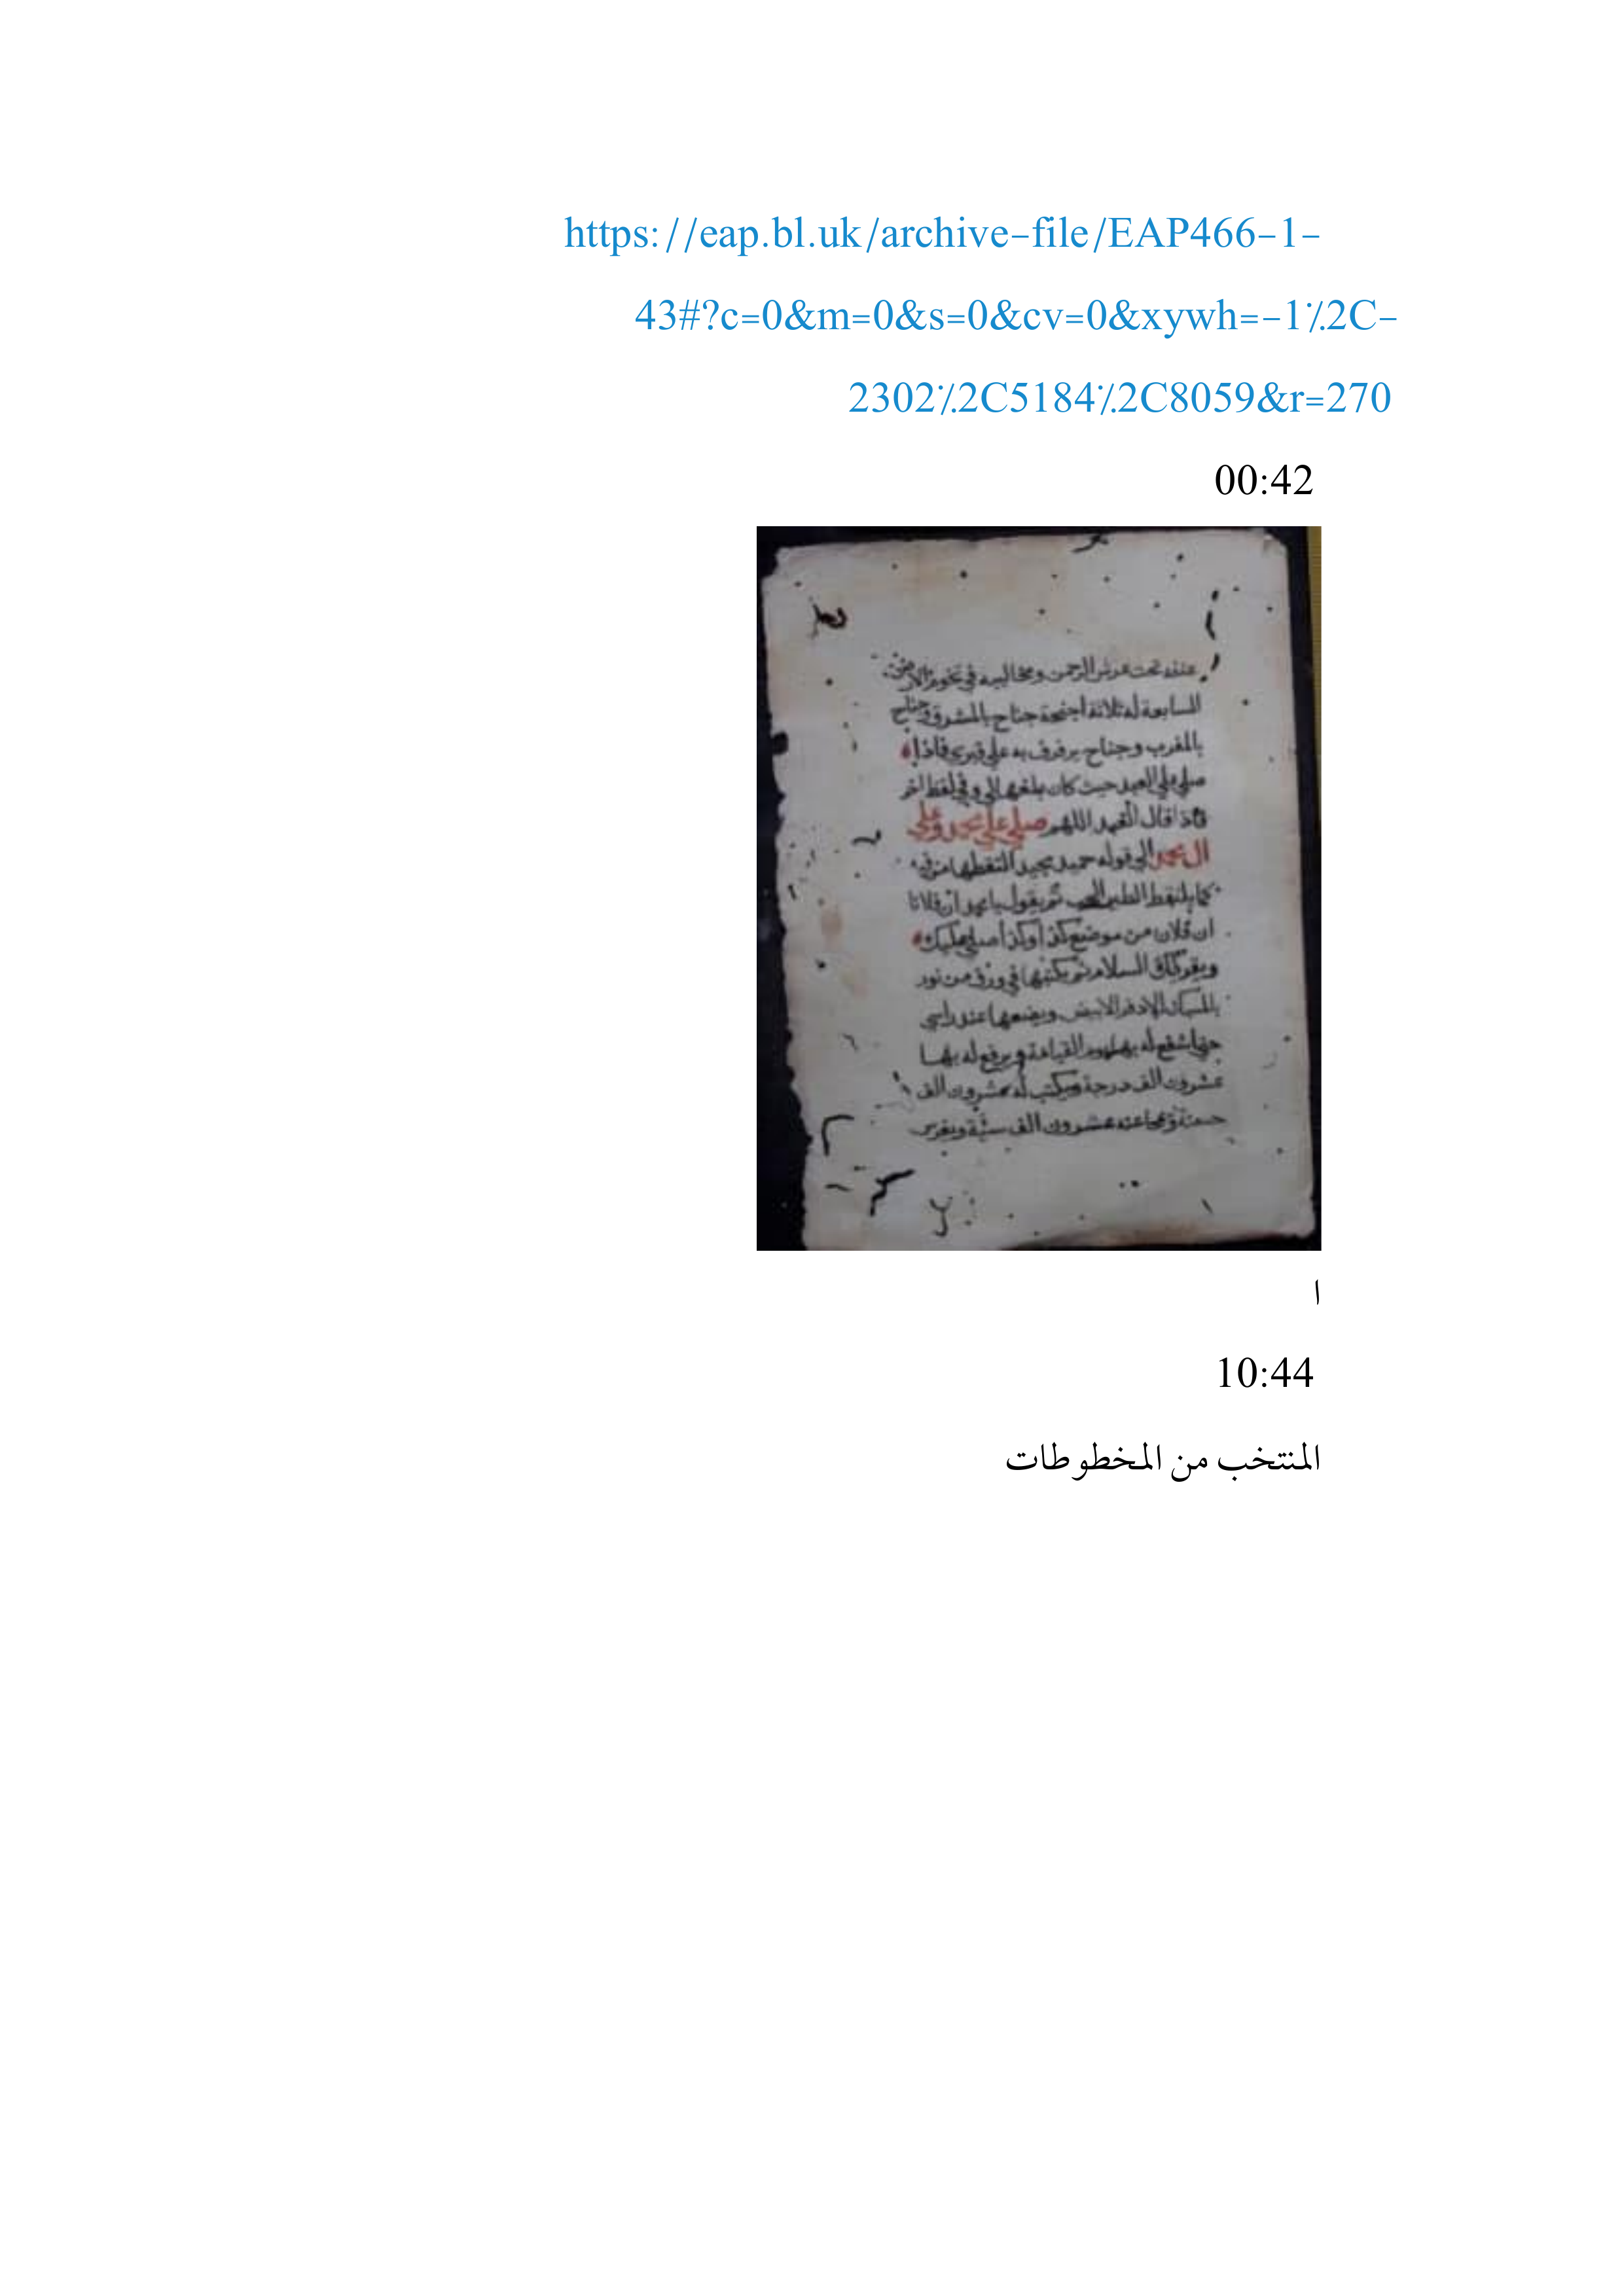 https://eap.bl.uk/archive-file/EAP466-1-
43#?c=0&m=0&s=0&cv=0&xywh=-1٪2C-
2302٪2C5184٪2C8059&r=270
00:42
عنقه تحت عرش الرحمن ومخاليبه في تخوم الارض
السابعة له ثلاثة اجنحة جناح بالمشرق وجناح
بالمغرب وجناح يرفرف به على قبري فاذا
صلي علي العبد حيث كان يلغها الي وفي لفظ اخر
فاذا قال العبد اللهم صلي علي محمد وعلي
ال محمد الي قوله حميد مجيد التقطها من فيه
كما يلتقط الطير الحب ثم يقول يا محمد ان فلانا
ابن فلان من موضع كذا وكذا صلي عليك
ويقرئك السلام ثم يكتبها في ورق من نور
بالمسك الاذفر الابيض ويضعها عند راسي
حتي اشفع له بها يوم القيامة ويرفع له بها
عشرون الف درجة ويكتب له عشرون الف
حسنة ومحا عنه عشرون الف سيئة ويغرس
ا
10:44
المنتخب من المخطوطات